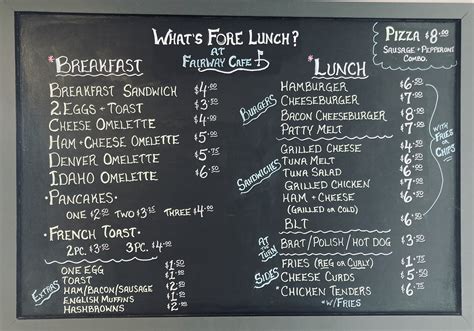 WHAT'S FORE LUNCH?
AT
FAIRWAY CAFE
PIZZA $8.00
SAUSAGE + PEPPERONI
COMBO.
*BREAKFAST
BREAKFAST SANDWICH $4.00
2 EGGS + TOAST $3.50
CHEESE OMELETTE $4.00
HAM + CHEESE OMELETTE $5.00
DENVER OMELETTE
IDAHO OMELETTE $6.50
•PANCAKES-
ONE $2.50 TWO $3.50 THREE $4.00
•FRENCH TOAST-
2 PC. $3.50 3 PC. $4.50
EXTRAS
ONE EGG $1.50
TOAST
HAM/BACON/SAUSAGE
ENGLISH MUFFINS
HASHBROWNS
*LUNCH
BURGERS
HAMBURGER $6.50
CHEESEBURGER $7.00
BACON CHEESEBURGER $8.00
PATTY MELT $7.00
WITH FRIES OR CHIPS
SANDWICHES
GRILLED CHEESE
TUNA MELT
TUNA SALAD
GRILLED CHICKEN
HAM + CHEESE
(GRILLED OR COLD)
BLT
AT TURN
BRAT/POLISH/HOT DOG
SIDES
FRIES (REG OR CURLY)
CHEESE CURDS
*CHICKEN TENDERS
*W/FRIES